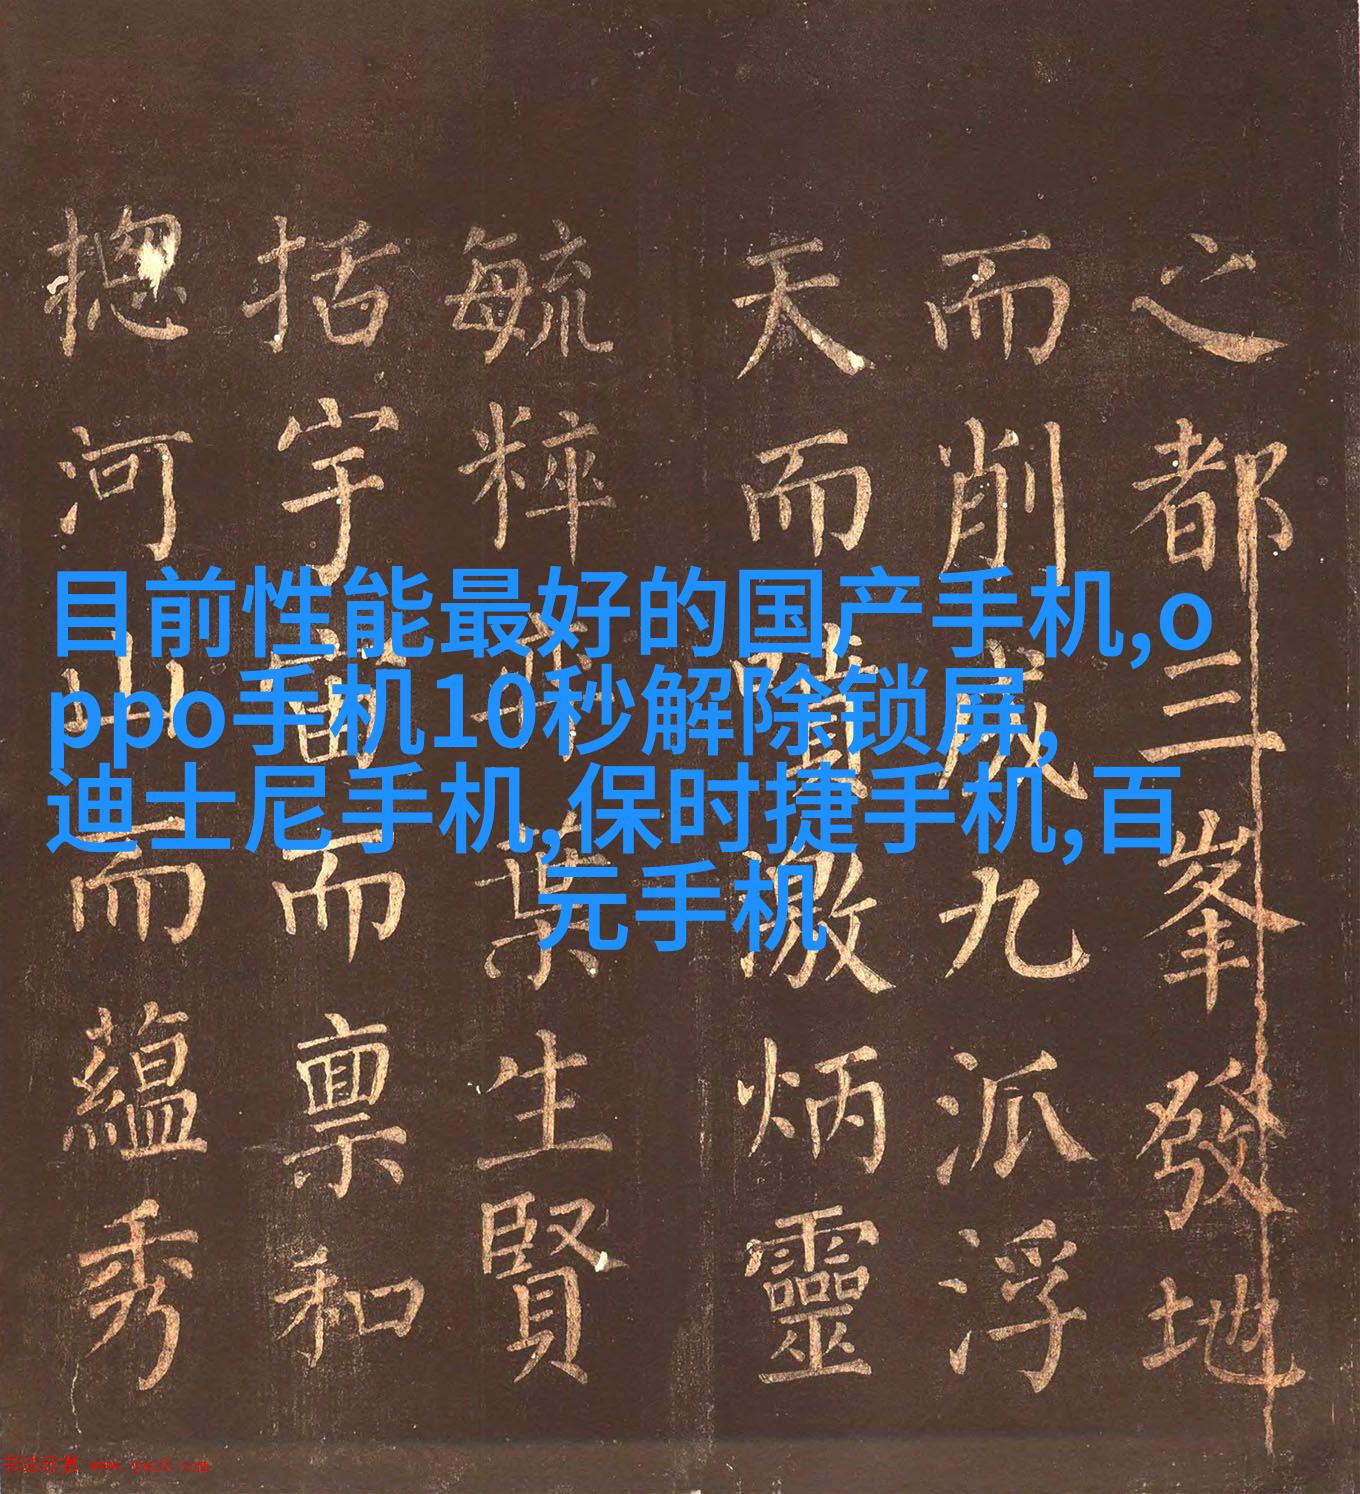 目前性能最好的国产手机,o
ppo手机10秒解除锁屏,
迪士尼手机,保时捷手机,百
元手机
之都三峯發地
而削成九派浮
天而噴激炳靈
毓粹弈葉生賢
括宇宙而禀和
揔河山而藴秀
书法欣赏 www.yac8.com